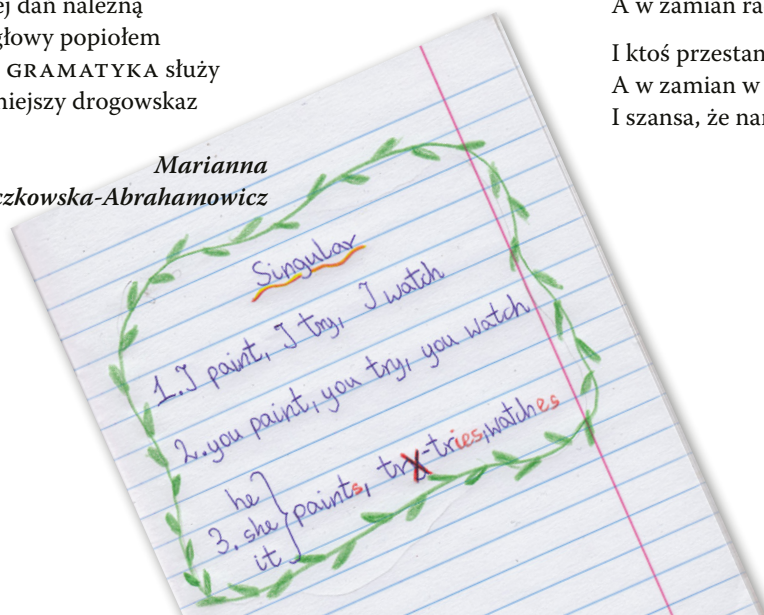 ej dań należną
głowy popiołem
GRAMATYKA służy
niejszy drogowskaz
Marianna
czkowska-Abrahamowicz
A w zamian ra
I ktoś przestan
A w zamian w
I szansa, że nar
Singular
1. I paint, I try, I watch
2. you paint, you try, you watch
he
3. she } paints, try-tries, watches
it